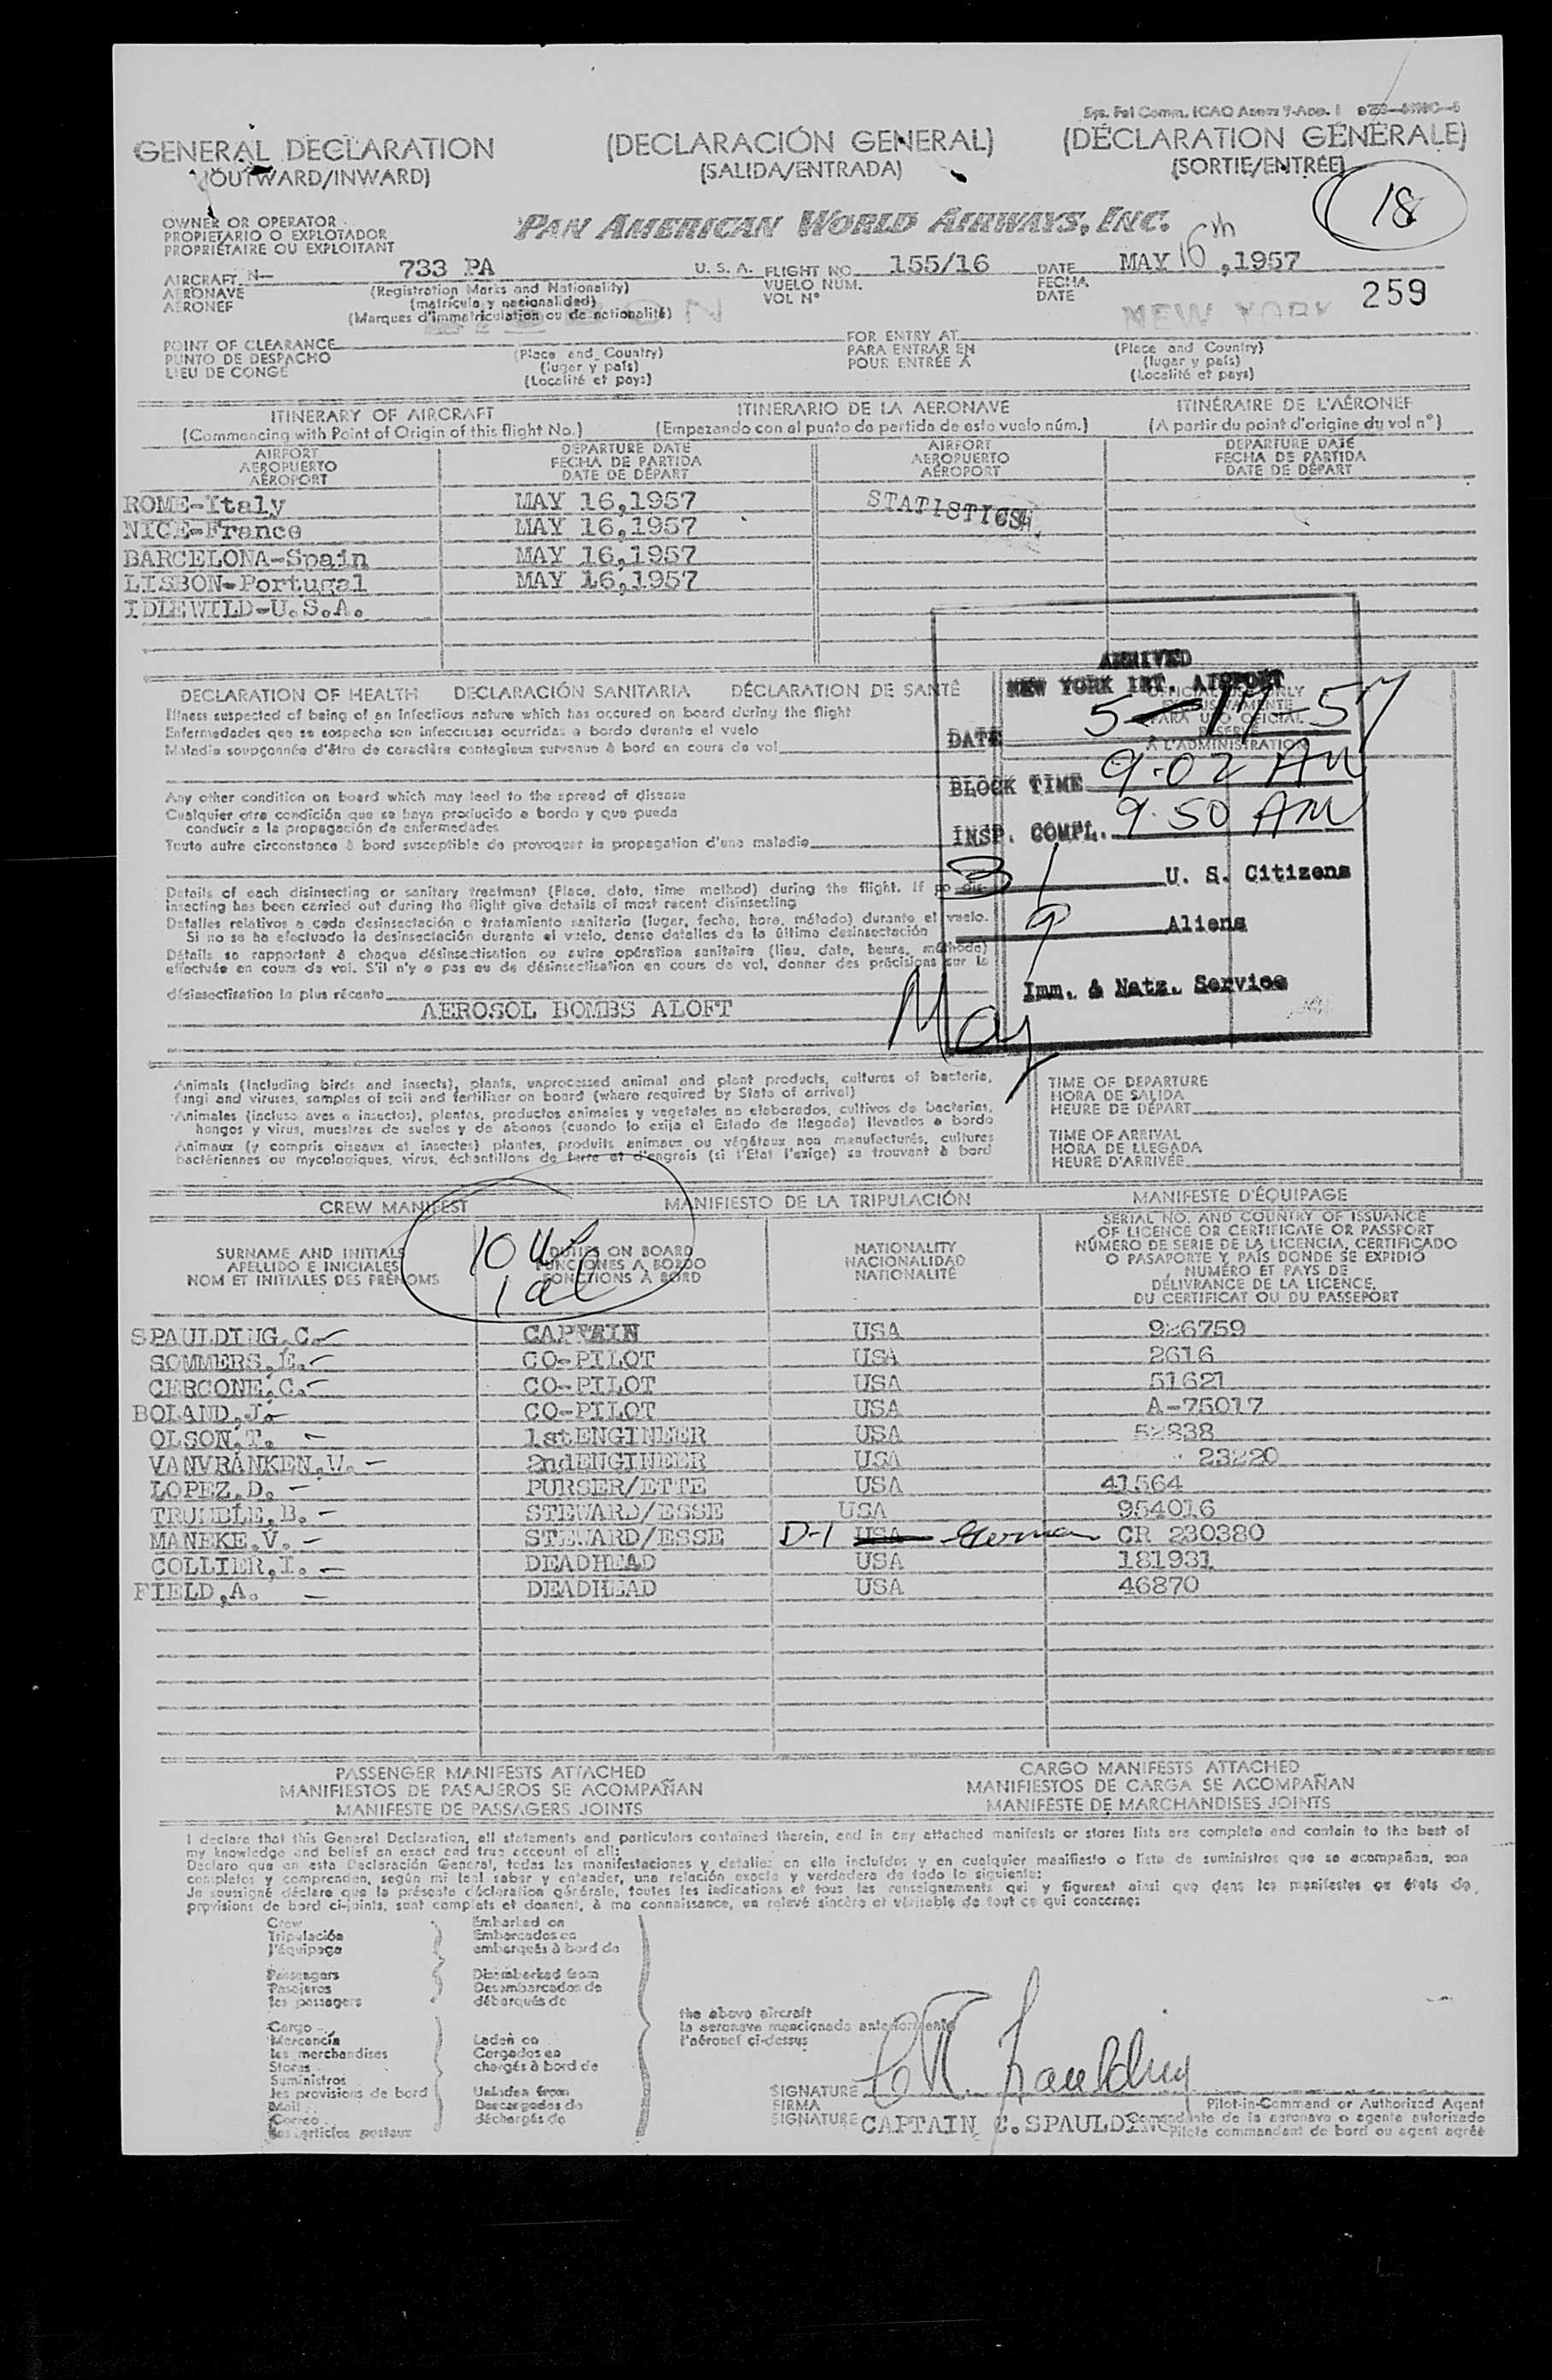 GENERAL DECLARATION (DECLARACIÓN GENERAL) (DÉCLARATION GÉNÉRALE)
(OUTWARD/INWARD) (SALIDA/ENTRADA) (SORTIE/ENTRÉE)
18
OWNER OR OPERATOR
PROPIETARIO O EXPLOTADOR
PROPRIÉTAIRE OU EXPLOITANT
PAN AMERICAN WORLD AIRWAYS, INC.
AIRCRAFT N— 733 PA U. S. A. FLIGHT NO. 155/16 DATE MAY 16th, 1957
AERONAVE (Registration Marks and Nationality) VUELO NUM. FECHA
AERONEF (matricula y nacionalidad) VOL N° DATE 259
(Marques d'immatriculation ou de nationalité)
NEW YORK
POINT OF CLEARANCE FOR ENTRY AT
PUNTO DE DESPACHO (Place and Country) PARA ENTRAR EN (Place and Country)
LIEU DE CONGÉ (lugar y país) POUR ENTRÉE À (lugar y país)
(Localité et pays) (Localité et pays)
ITINERARY OF AIRCRAFT ITINERARIO DE LA AERONAVE ITINÉRAIRE DE L'AÉRONEF
(Commencing with Point of Origin of this flight No.) (Empezando con el punto de partida de este vuelo núm.) (A partir du point d'origine du vol n°)
AIRPORT DEPARTURE DATE AIRPORT DEPARTURE DATE
AEROPUERTO FECHA DE PARTIDA AEROPUERTO FECHA DE PARTIDA
AÉROPORT DATE DE DÉPART AÉROPORT DATE DE DÉPART
ROME-Italy MAY 16,1957 STATISTICS
NICE-France MAY 16,1957
BARCELONA-Spain MAY 16,1957
LISBON-Portugal MAY 16,1957
IDLEWILD-U.S.A.
DECLARATION OF HEALTH DECLARACIÓN SANITARIA DÉCLARATION DE SANTÉ
Illness suspected of being of an infectious nature which has occured on board during the flight
Enfermedades que se sospecha son infecciosas ocurridas a bordo durante el vuelo
Maladie soupçonnée d'être de caractère contagieux survenue à bord en cours de vol
Any other condition on board which may lead to the spread of disease
Cualquier otra condición que se haya producido a bordo y que pueda
conducir a la propagación de enfermedades
Toute autre circonstance à bord susceptible de provoquer la propagation d'une maladie
Details of each disinsecting or sanitary treatment (Place, date, time method) during the flight. If no dis-
insecting has been carried out during the flight give details of most recent disinsecting
Detalles relativos a cada desinsectación o tratamiento sanitario (lugar, fecha, hora, método) durante el vuelo.
Si no se ha efectuado la desinsectación durante el vuelo, dense detalles de la última desinsectación
Détails se rapportant à chaque désinsectisation ou autre opération sanitaire (lieu, date, heure, méthode)
effectuée en cours de vol. S'il n'y a pas eu de désinsectisation en cours de vol, donner des précisions sur la
désinsectisation la plus récente
AEROSOL BOMBS ALOFT
OFFICIAL USE ONLY
PARA USO OFICIAL
À L'ADMINISTRATION
ARRIVED
NEW YORK INT. AIRPORT
DATE 5-17-57
BLOCK TIME 9.02 AM
INSP. COMPL. 9.50 AM
U. S. Citizens
9 Aliens
Imm. & Natz. Service
May
Animals (including birds and insects), plants, unprocessed animal and plant products, cultures of bacteria,
fungi and viruses, samples of soil and fertilizer on board (where required by State of arrival)
Animales (incluso aves e insectos), plantas, productos animales y vegetales no elaborados, cultivos de bacterias,
hongos y virus, muestras de suelos y de abonos (cuando lo exija el Estado de llegada) llevados a bordo
Animaux (y compris oiseaux et insectes) plantes, produits animaux ou végétaux non manufacturés, cultures
bactériennes ou mycologiques, virus, échantillons de terre et d'engrais (si l'État l'exige) se trouvant à bord
TIME OF DEPARTURE
HORA DE SALIDA
HEURE DE DÉPART
TIME OF ARRIVAL
HORA DE LLEGADA
HEURE D'ARRIVÉE
CREW MANIFEST MANIFIESTO DE LA TRIPULACIÓN MANIFESTE D'ÉQUIPAGE
SURNAME AND INITIALS
APELLIDO E INICIALES
NOM ET INITIALES DES PRÉNOMS
DUTIES ON BOARD
FUNCIONES A BORDO
FONCTIONS À BORD
10
1 al
NATIONALITY
NACIONALIDAD
NATIONALITÉ
SERIAL NO. AND COUNTRY OF ISSUANCE
OF LICENCE OR CERTIFICATE OR PASSPORT
NÚMERO DE SERIE DE LA LICENCIA, CERTIFICADO
O PASAPORTE Y PAÍS DONDE SE EXPIDIÓ
NUMÉRO ET PAYS DE
DÉLIVRANCE DE LA LICENCE,
DU CERTIFICAT OU DU PASSEPORT
SPAULDING,C. CAPTAIN USA 926759
SOMMERS,E. CO-PILOT USA 2616
CERCONE,C. CO-PILOT USA 51621
BOLAND,J. CO-PILOT USA A-75017
OLSON,T. 1stENGINEER USA 52838
VANVRANKEN,W. 2ndENGINEER USA 23220
LOPEZ,D. PURSER/ETTE USA 41564
TRUMBLE,B. STEWARD/ESSE USA 954016
MANEKE,V. STEWARD/ESSE D-1 USA German CR 230380
COLLIER,I. DEADHEAD USA 181931
FIELD,A. DEADHEAD USA 46870
PASSENGER MANIFESTS ATTACHED CARGO MANIFESTS ATTACHED
MANIFIESTOS DE PASAJEROS SE ACOMPAÑAN MANIFIESTOS DE CARGA SE ACOMPAÑAN
MANIFESTE DE PASSAGERS JOINTS MANIFESTE DE MARCHANDISES JOINTS
I declare that this General Declaration, all statements and particulars contained therein, and in any attached manifests or stores lists are complete and contain to the best of
my knowledge and belief an exact and true account of all:
Declaro que en esta Declaración General, todas las manifestaciones y detalles en ella incluídos y en cualquier manifiesto o lista de suministros que se acompañan, son
completos y comprenden, según mi leal saber y entender, una relación exacta y verdadera de todo lo siguiente:
Je soussigné déclare que la présente déclaration générale, toutes les indications et tous les renseignements qui y figurent ainsi que dans les manifestes ou états de
provisions de bord ci-joints, sont complets et donnent, à ma connaissance, un relevé sincère et véritable de tout ce qui concerne:
Crew Embarked on
Tripulación Embarcados en
l'équipage embarqués à bord de
Passengers Disembarked from
Pasajeros Desembarcados de
les passagers débarqués de
the above aircraft
la aeronave mencionada anteriormente
l'aéronef ci-dessus
Cargo
Mercancía Laden on
les merchandises Cargados en
Stores chargés à bord de
Suministros
les provisions de bord Unladen from
Mail Descargados de
Correo déchargés de
les articles postaux
SIGNATURE
FIRMA Pilot-in-Command or Authorized Agent
SIGNATURE CAPTAIN C.SPAULDING Comandante de la aeronave o agente autorizado
Pilote commandant de bord ou agent agréé